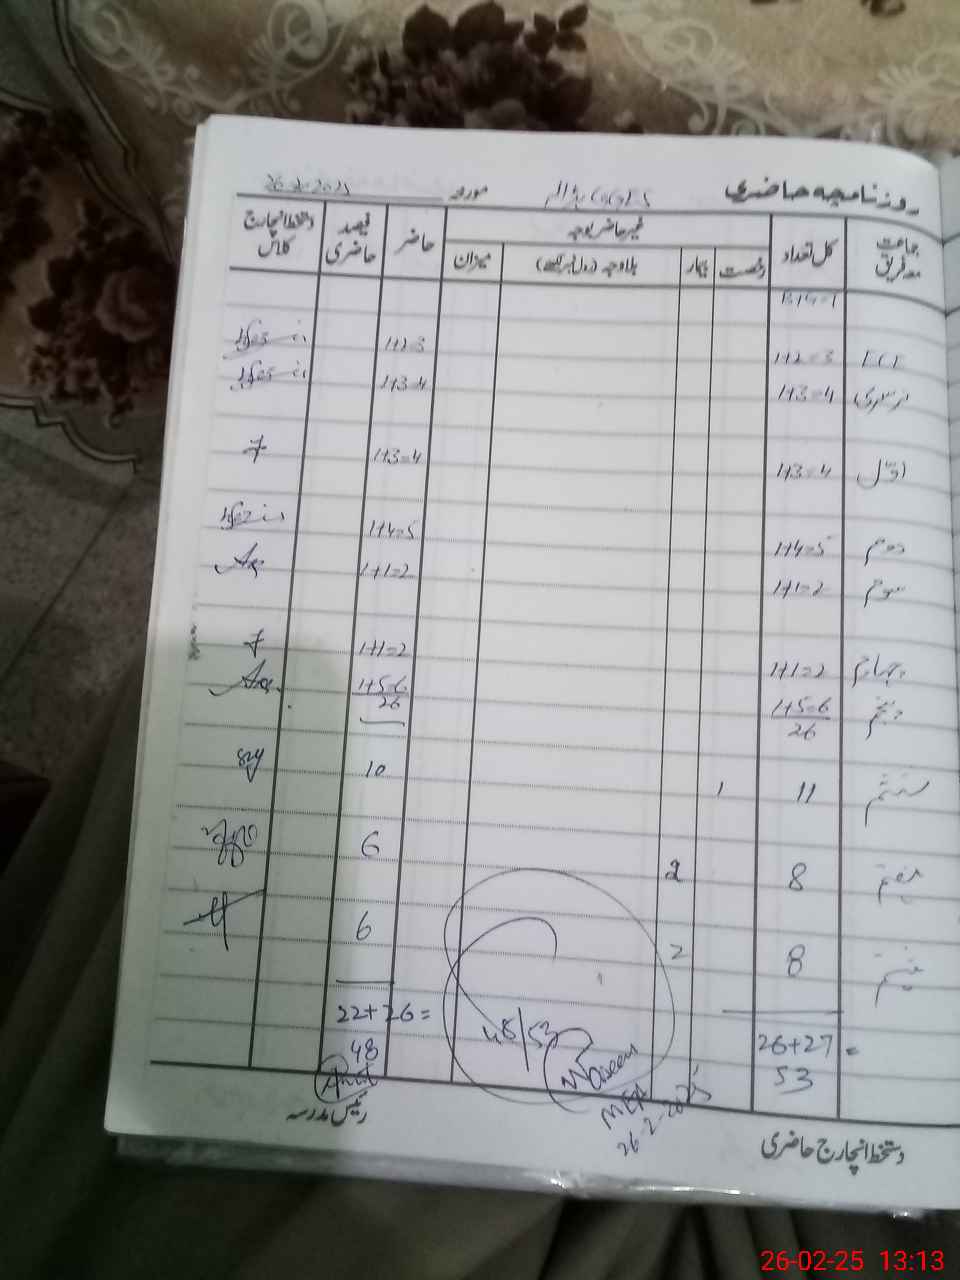 روزنامچہ حاضری GGES مورخہ 26-2-2025
جماعت معہ فریق کل تعداد غیر حاضر بوجہ حاضر فیصد حاضری دستخط انچارج کلاس
رخصت بیمار بلاوجہ (رول نمبر لکھیے) میزان
B+G=T
ECE 1+2=3 1+2=3
نرسری 1+3=4 1+3=4
اوّل 1+3=4 1+3=4
دوم 1+4=5 1+4=5
سوم 1+1=2 1+1=2
چہارم 1+1=2 1+1=2
پنجم 1+5=6 1+5=6
26 26
ششم 11 1 10
ہفتم 8 2 6
ہشتم 8 2 6
26+27= 22+26=
53 48/53 48
Waseem
MEA
26-2-2025
رئیس مدرسہ
دستخط انچارج حاضری
26-02-25 13:13